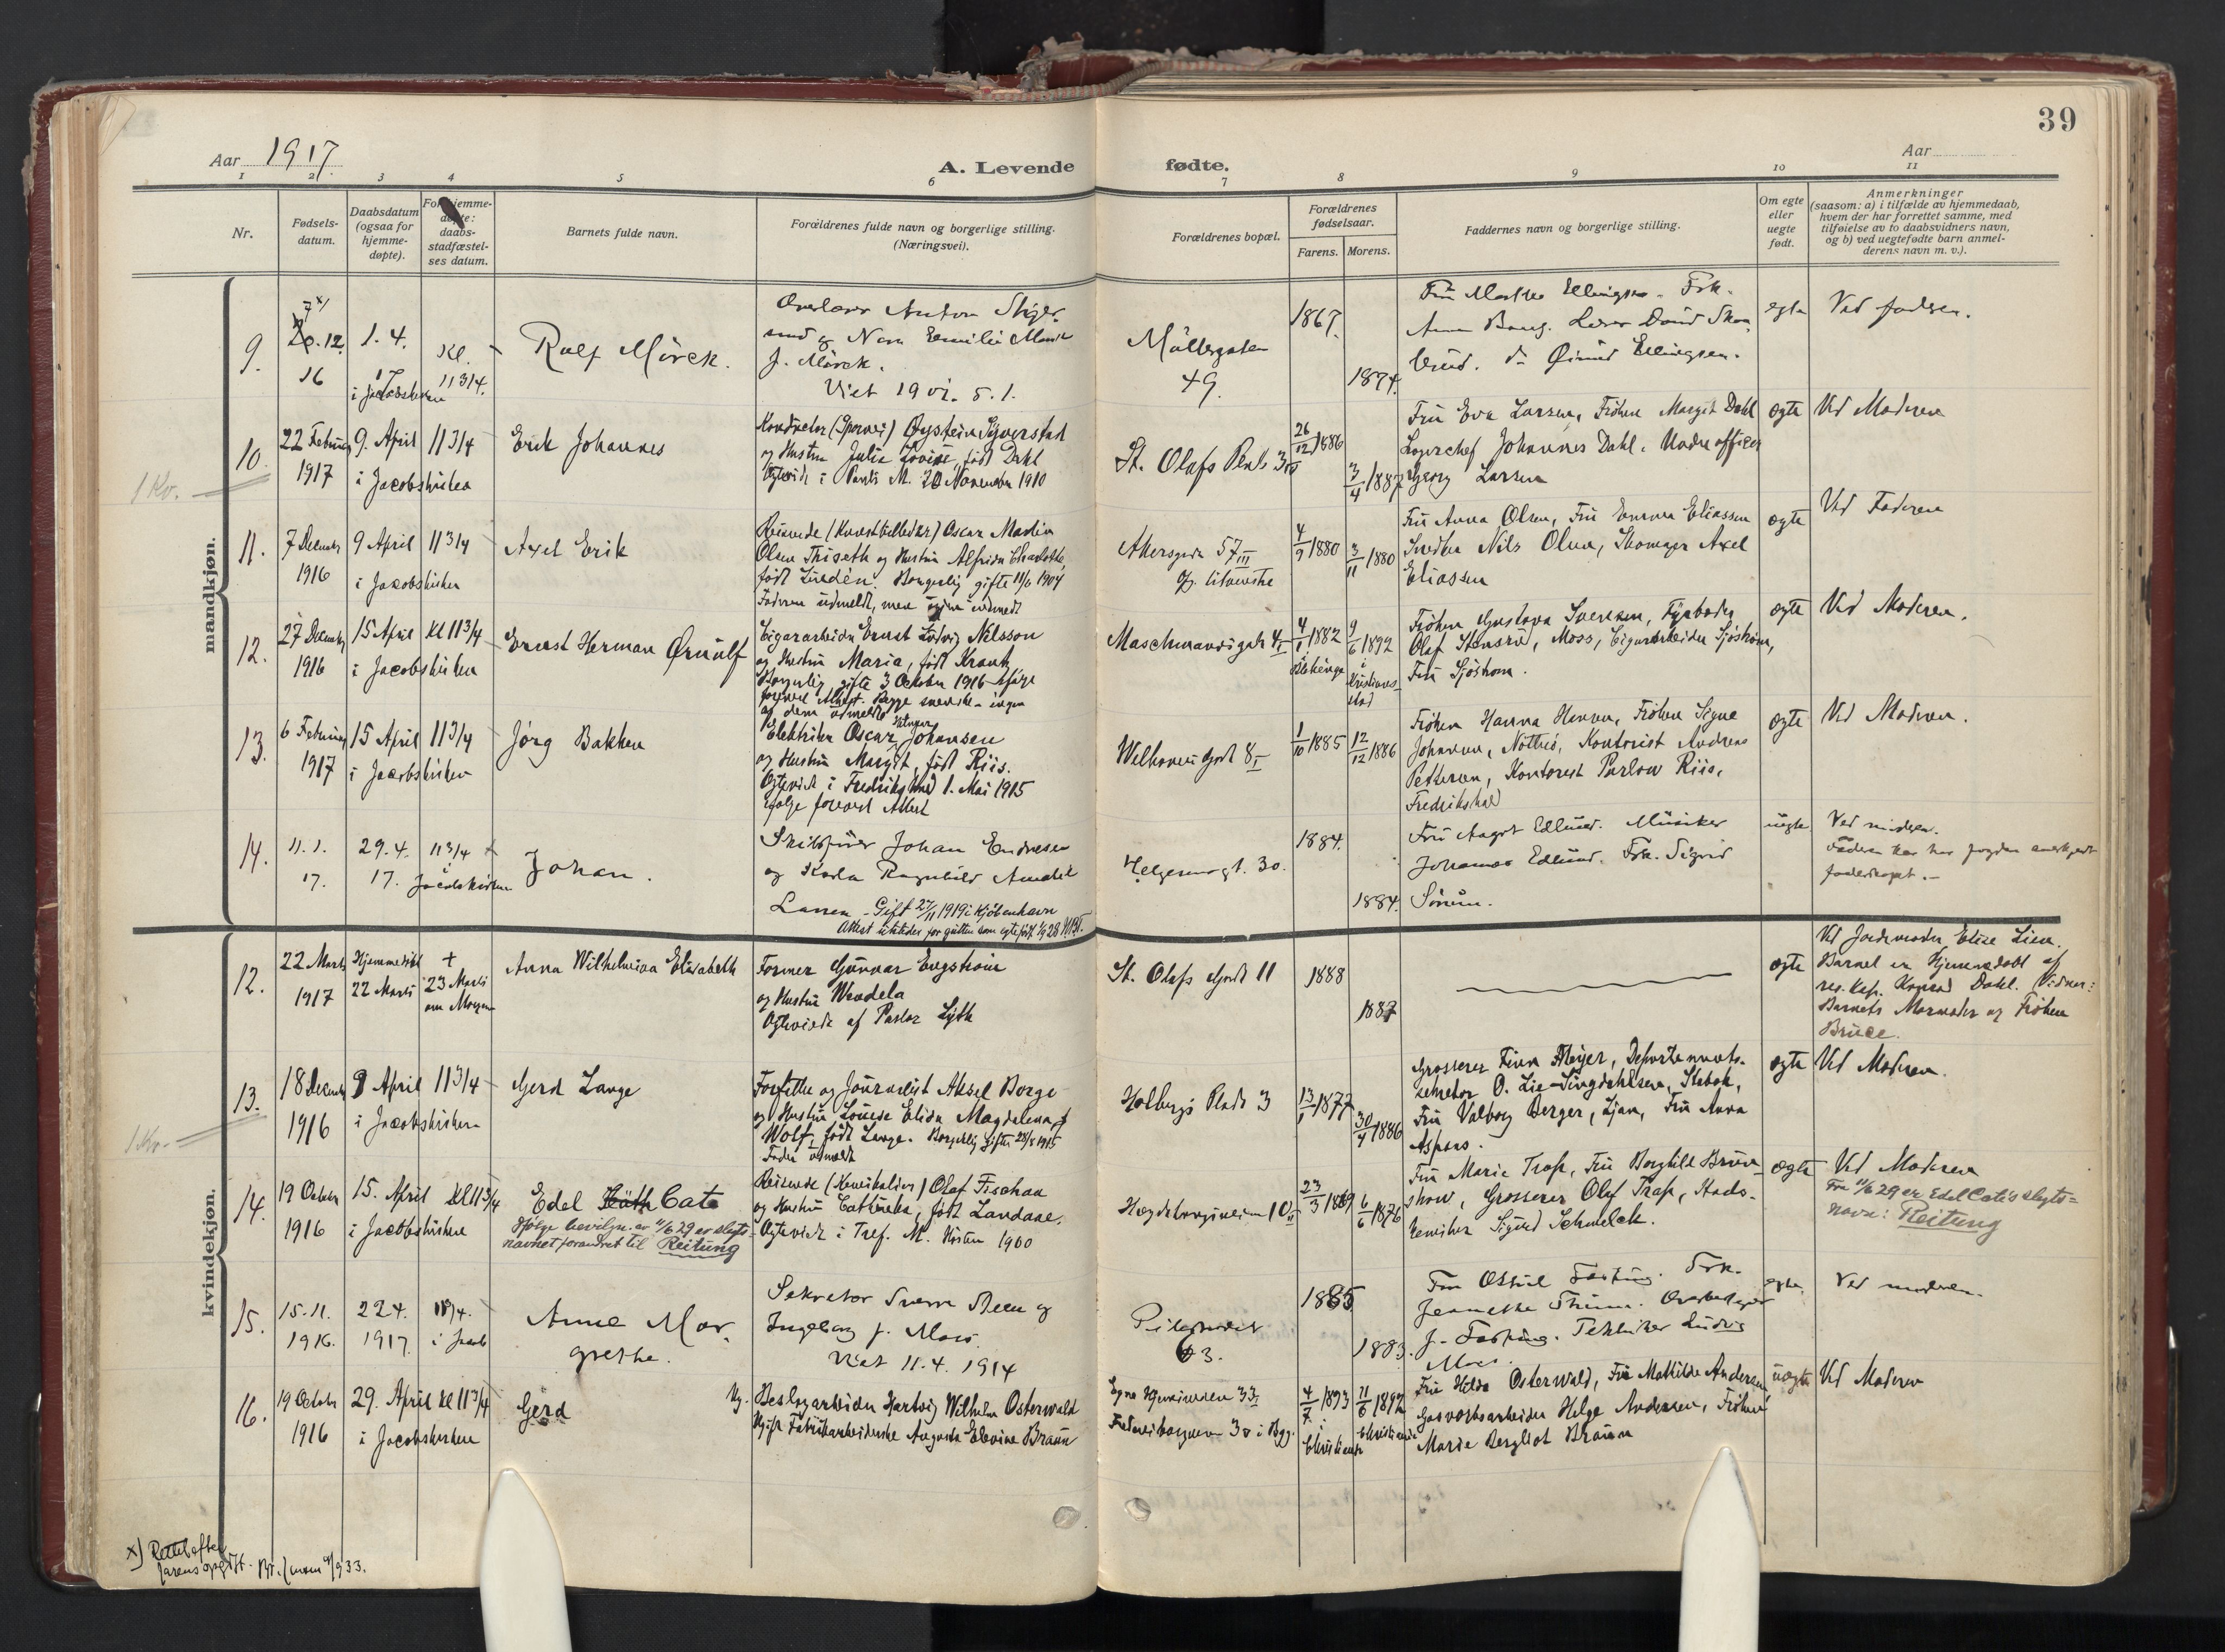 39
Aar 1917.
A. Levende fødte.
Aar
1 2 3 4 5 6 7 8 9 10 11
Nr.
Fødsels-
datum.
Daabsdatum
(ogsaa for
hjemme-
døpte).
For hjemme-
døpte:
daabs-
stadfæstel-
ses datum.
Barnets fulde navn.
Forældrenes fulde navn og borgerlige stilling.
(Næringsvei).
Forældrenes bopæl.
Forældrenes
fødselsaar.
Farens. Morens.
Faddernes navn og borgerlige stilling.
Om egte
eller
uegte
født.
Anmerkninger
(saasom: a) i tilfælde av hjemmedaab,
hvem der har forrettet samme, med
tilføielse av to daabsvidners navn,
og b) ved uegtefødte barn anmel-
derens navn m. v.).
mandkjøn.
9.
12.
16
1. 4.
17
i Jacobskirken
Kl.
11 3/4.
Rolf Mörck.
Anton
og Emilie Marie
f. Mörck.
Viet 1901. 5. 1.
Möllergaten
49.
1867.
1874.
Ellingsen. Frk.
Ellingsen.
egte
Ved faderen.
1 Kv.
10.
22 Februar
1917
9. April
i Jacobskirken
11 3/4
Erik Johannes
Konduktør (Sporvei) Øystein Syverstad
og Hustru Julie Lovise, født Dahl
Egteviet i Pauls M. 20 November 1910
St. Olafs Plads 3
26/12 1886
3/4 1887
Fru Eva Larsen, Fröken Margit Dahl
Lagerchef Johannes Dahl, Underofficer
Georg Larsen
egte
Ved Moderen
11.
7 Decemb.
1916
9 April
i Jacobskirken
11 3/4
Axel Erik
Reisende (Kunstbilleder) Oscar Martin
Olsen Thiseth og Hustru Alfrida Charlotte,
født Lindén. Borgerlig gifte 11/6 1904
Faderen udmeldt, men igjen indmeldt
Akersgade 57 III
Op. tilvenstre
4/9 1880
3/11 1880
Fru Anna Olsen, Fru Emma Eliassen
Snedker Nils Olsen, Skomager Axel
Eliassen
egte
Ved Faderen
12.
27 Decemb.
1916
15 April
i Jacobskirken
Kl 11 3/4
Ernest Herman Ørnulf
Cigararbeider Ernst Ludvig Nilsson
og Hustru Maria, født Krantz
Borgerlig gifte 3 October 1916 ifølge
forevist Attest. Begge svenske - ingen
af dem udmeldt
4/1 1882
i
Blekinge
9/6 1892
i
Kristians-
stad
Fröken Gustava Svensen, Fyrbøder
Olaf Stensrud, Moss, Cigararbeider Sjöström,
Fru Sjöström.
egte
Ved Moderen.
13.
6 Februar
1917
15 April
i Jacobskirken
11 3/4
Jörg Bakken
Elektriker Oscar Johansen
og Hustru Margit, født Riis.
Egteviet i Fredrikshald 1. Mai 1915
ifølge forevist Attest
Welhavens Gade 8 I
1/10 1885
12/12 1886
Fröken Hanna Hansen, Fröken Signe
Johansen, Nötterö, Kontorist Andreas
Pettersen, Kontorist Parlow Riis,
Fredrikshald
egte
Ved Moderen.
14.
11. 1.
17.
29. 4.
17.
11 3/4
Jacobskirken
Johan.
Johan Endresen
og Karla Ragnhild Amalie
Larsen - Gift 27/11 1919 i Kjøbenhavn
Attest utstedes for gutten som egtefødt 1/9 28
Helgesensgt. 30.
1884.
1884.
Fru Aagot Edlund. Musiker
Johannes Edlund. Frk. Sigrid
uegte
Ved moderen.
Faderen har
faderskapet. -
kvindekjøn.
12.
22 Marts
1917
Hjemmedöbt
22 Marts
+
23 Marts
om Morgen
Anna Wilhelmina Elisabeth
Former Gunnar Engström
og Hustru Wendela
Egteviede af Pastor Lyth
St. Olafs Gade 11
1888
1887
egte
Ved Jordemoder Elise Lien.
Barnet er Hjemmedøbt af
res. Kap. Konrad Dahl. Vidner:
Barnets Mormoder og Fröken
Bruce.
1 Kv.
13.
18 Decemb
1916
9 April
i Jacobskirken
11 3/4
Gerd Lange
Forfatter og Journalist Aksel Berge
og Hustru Louise Elida Magdalena
Wolf, født Lange. Borgerlig gifte 28/8 1915
Fader udmeldt
Holbergs Plads 3
13/1 1877
30/4 1886
Grosserer Finn Meyer, Departements-
sekretær O. Lie-Singdahlsen, Stabæk,
Fru Valborg Berger, Ljan, Fru Anna
Aspaas.
egte
Ved Moderen.
14.
19 October
1916
15. April
i Jacobskirken
Kl 11 3/4
Edel Cato
Ifølge bevilgn. av 11/6 29 er slegts-
navnet forandret til Reitung
Reisende (Kemikalier) Olaf Fischaa
og Hustru Cathinka, født Landaae.
Egteviet i Tref. M. Høsten 1900
23/3 1869
6/6 1876
Fru Marie Trap, Fru Borghild Bruen-
show, Grosserer Olaf Trap, Stads-
kemiker Sigurd Schmelck.
egte
Ved Moderen
Fra 11/6 29 er Edel Cato's slegts-
navn: Reitung
15.
15. 11.
1916.
22 4.
1917.
i Jacob
Anne Mar-
grethe.
Sekretær Sverre Steen og
Ingeborg f. Moes.
Viet 11. 4. 1914
Pilestrædet
63.
1885
1883.
Jeannette
Tekniker Ludvig
Moes.
egte
Ved moderen.
16.
19 October
1916
29. April
i Jacobskirken
Kl 11 3/4
Gerd
Ug. Beslagarbeider Hartvig Wilhelm Osterwald
Ugift Fabrikarbeiderske Augusta Elevine Braun
4/7 1893
i
Christiania
11/6 1892
Christiania
Fru Hilda Osterwald, Fru Mathilde Andersen
Gasverksarbeider Helge Andersen, Fröken
Marie Bergliot Braun
uegte
Ved Moderen
x) Rettet efter